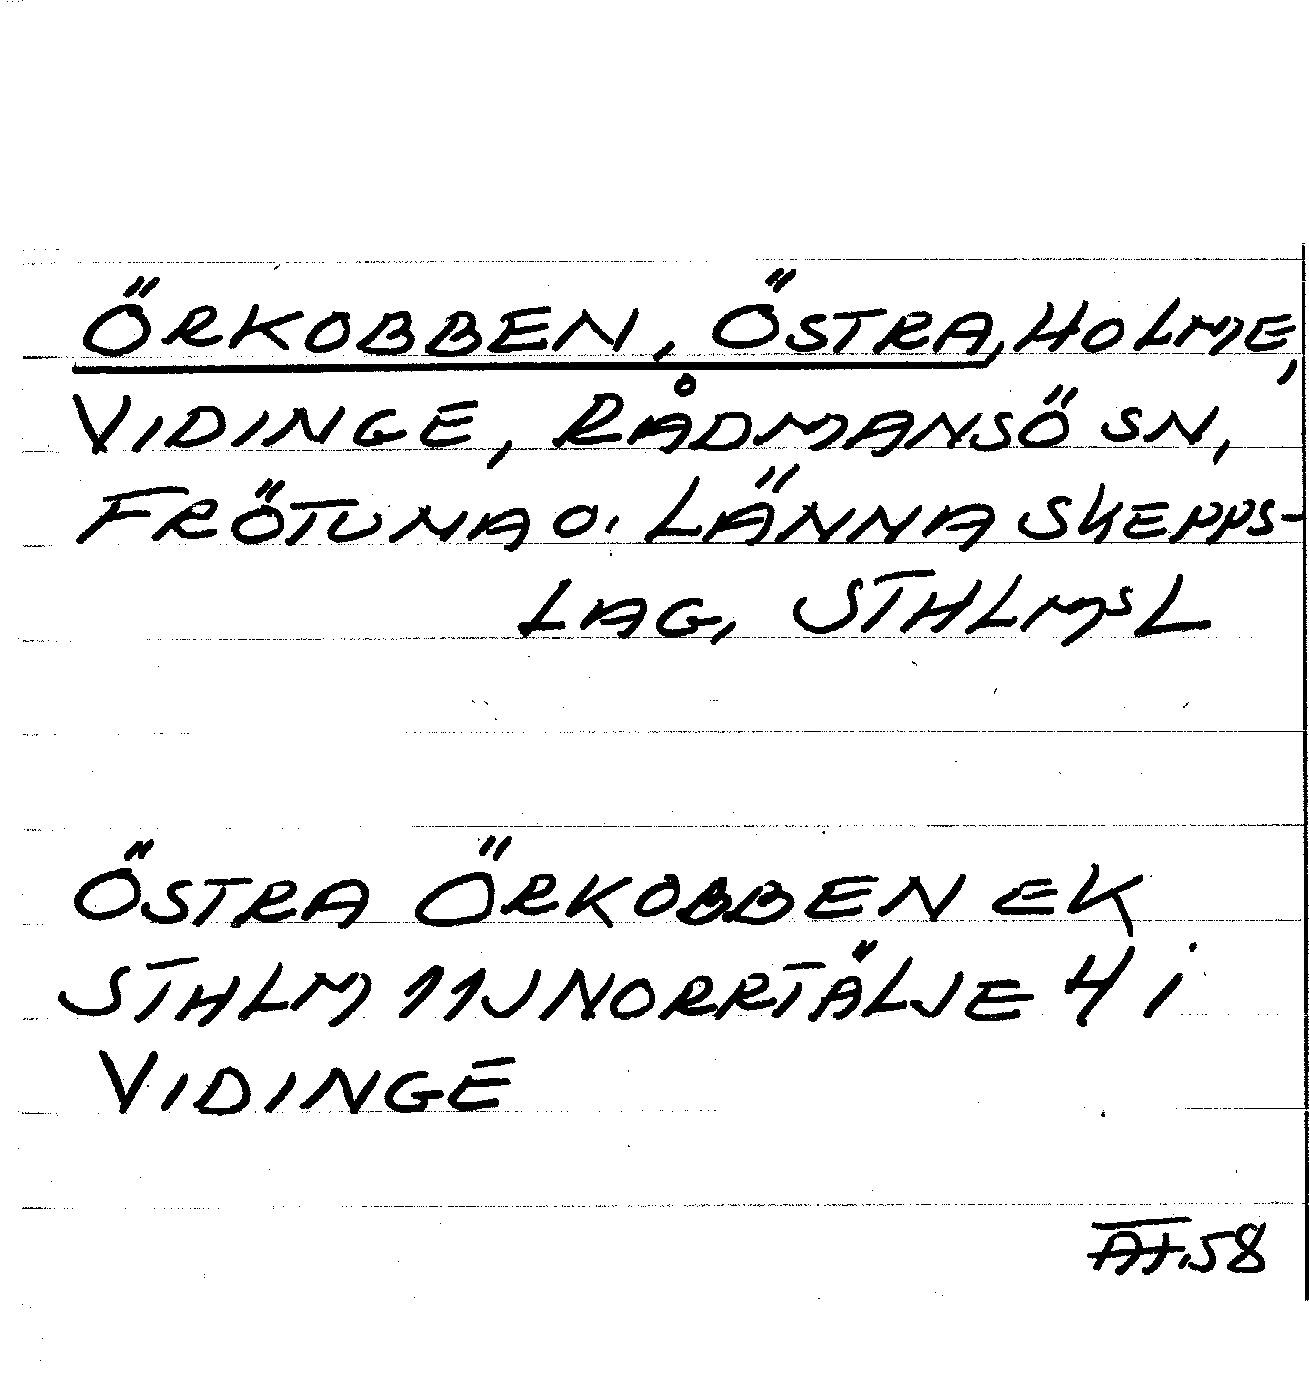 ÖRKOBBEN, ÖSTRA, HOLME,
VIDINGE, RÅDMANSÖ SN,
FRÖTUNA O. LÄNNA SKEPPS-
LAG, STHLMSL
ÖSTRA ÖRKOBBEN EK
STHLM 11J NORRTÄLJE 4 i
VIDINGE
58